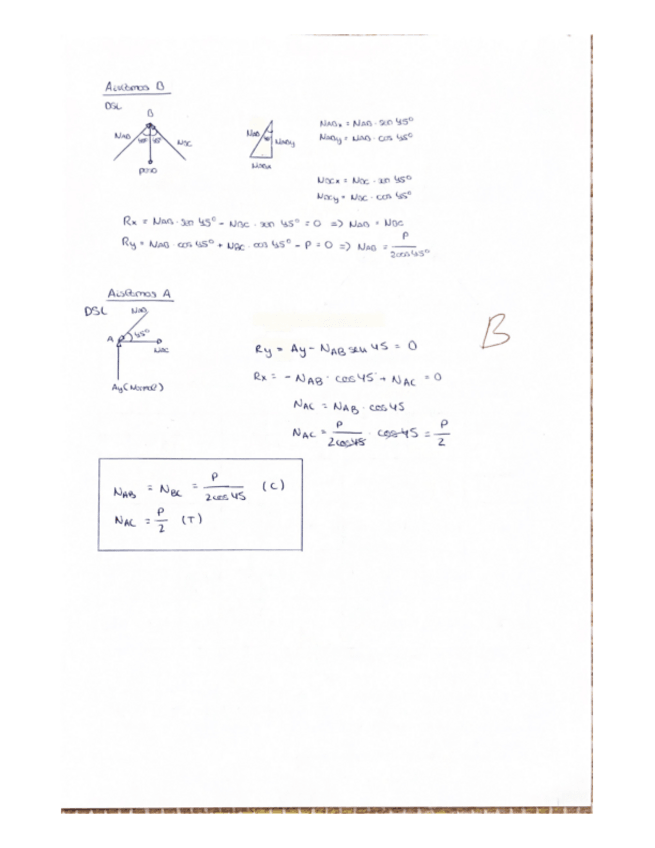 Aislamos B
DSL
B
NAB 45° 45° NBC
peso
NAB 45° NABy
NABx
NABx = NAB · sen 45°
NABy = NAB · cos 45°
NBCx = NBC · sen 45°
NBCy = NBC · cos 45°
Rx = NAB · sen 45° - NBC · sen 45° = 0 => NAB = NBC
Ry = NAB · cos 45° + NBC · cos 45° - P = 0 => NAB = P / 2cos45°
Aislamos A
DSL NAB
A 45°
NAC
Ay (Normal)
B
Ry = Ay - NAB sen 45 = 0
Rx = - NAB · cos 45 + NAC = 0
NAC = NAB · cos 45
NAC = P / 2cos45 · cos 45 = P / 2
NAB = NBC = P / 2cos 45 (C)
NAC = P / 2 (T)